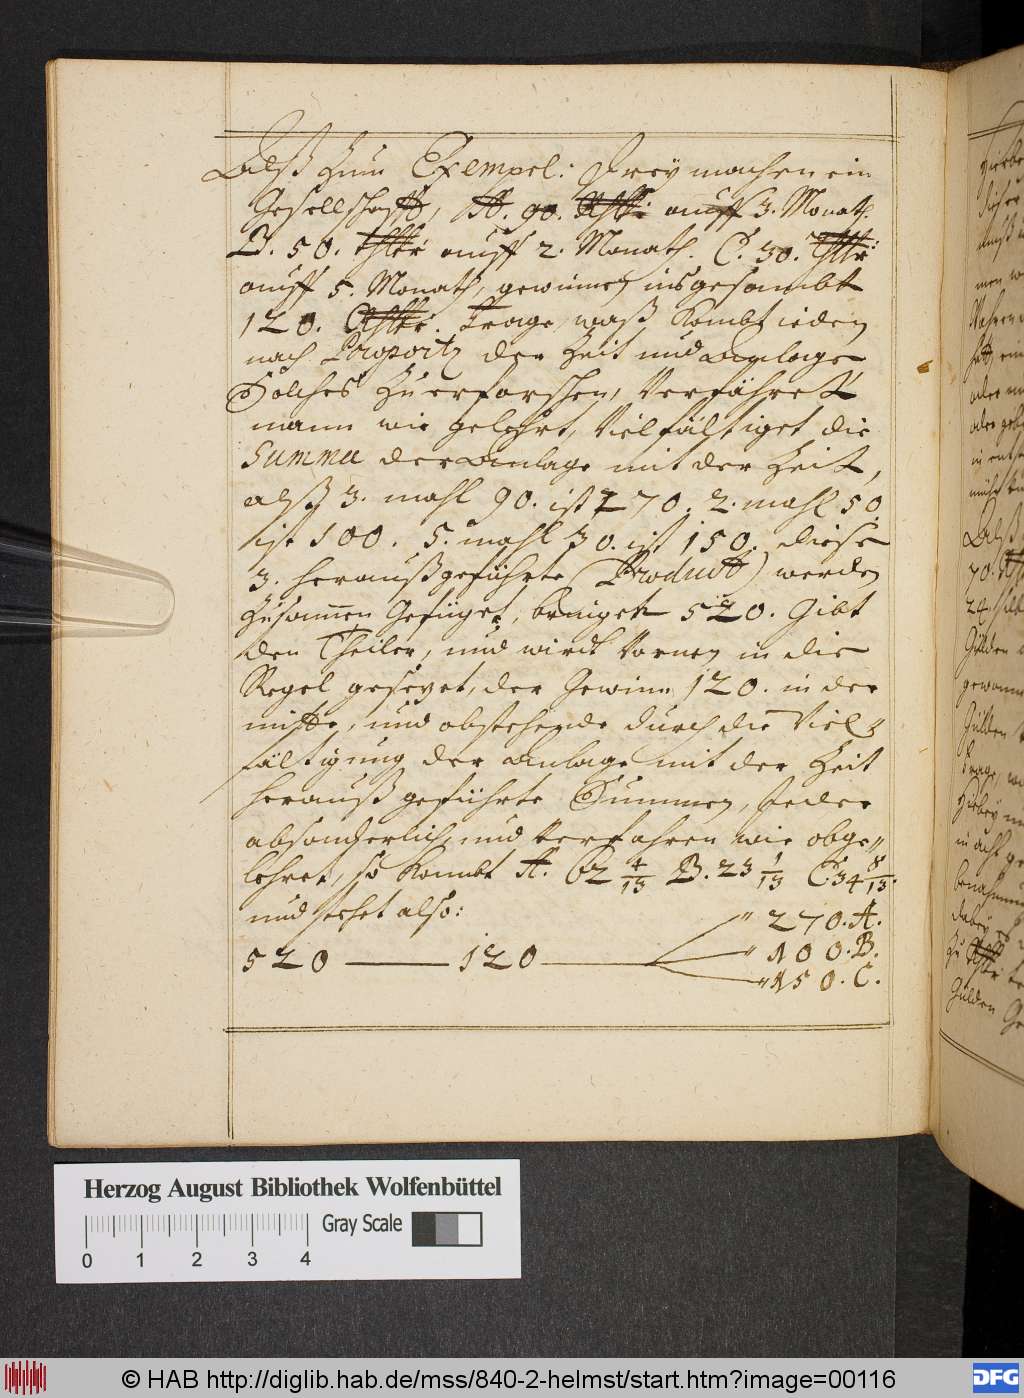 Alß zum Exempel: Drey machen ein
Gesellschafft, A. 90. Thlr: auff 3. Monath.
B. 50. Thlr: auff 2. Monath. C. 30. Thlr:
auff 5. Monath, gewinnen insgesambt
120. Thlr: Frage, waß kombt ieden
nach Proportz der Zeit und Anlage
Solches zu erforschen, Verfähret
mann wie gelehrt, Vielfältiget die
Summa der Anlage mit der Zeit,
alß 3. mahl 90. ist 270. 2. mahl 50.
ist 100. 5. mahl 30. ist 150. diese
3. heraußgeführte (Product) werden
zusam̅en Gefüget, bringet 520. Gibt
den Theiler, und wirdt Vornen in die
Regel gesezet, der Gewinn 120. in der
mitte, und abstehende durch die Viel=
fältigung der Anlage mit der Zeit
herauß geführte Summen, Jeder
absonderlich, und Verfahren wie obge=
lehret, so kombt A. 62 4/13 B. 23 1/13 C. 34 8/13.
und stehet also:
270. A.
520 — 120 — 100. B.
150. C.
Herzog August Bibliothek Wolfenbüttel
Gray Scale
0 1 2 3 4
© HAB http://diglib.hab.de/mss/840-2-helmst/start.htm?image=00116
DFG